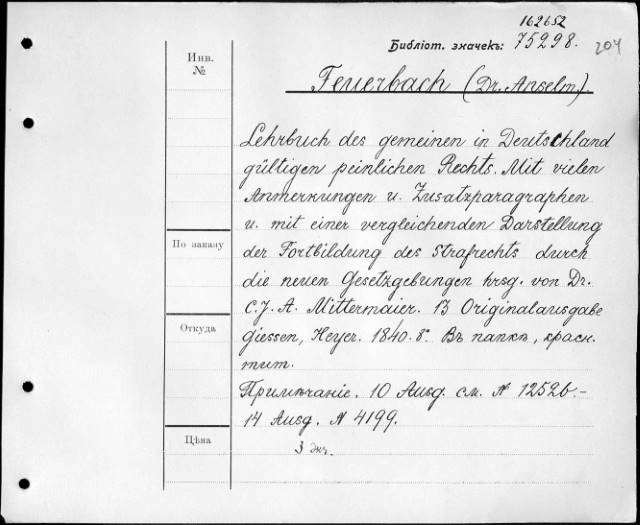 162652
Библіот. значекъ: 75298. 204
Инв.
№
Feuerbach (Dr. Anselm).
Lehrbuch des gemeinen in Deutschland
gültigen peinlichen Rechts. Mit vielen
Anmerkungen u. Zusatzparagraphen
u. mit einer vergleichenden Darstellung
По заказу
der Fortbildung des Strafrechts durch
die neuen Gesetzgebungen hrsg. von Dr.
C. J. A. Mittermaier. 13 Originalausgabe
Откуда
Giessen, Heyer. 1840. 8°. Въ папкѣ, красн.
тит.
Примѣчаніе. 10 Ausg. см. № 12526.-
14 Ausg. № 4199.
Цѣна
3 экз.